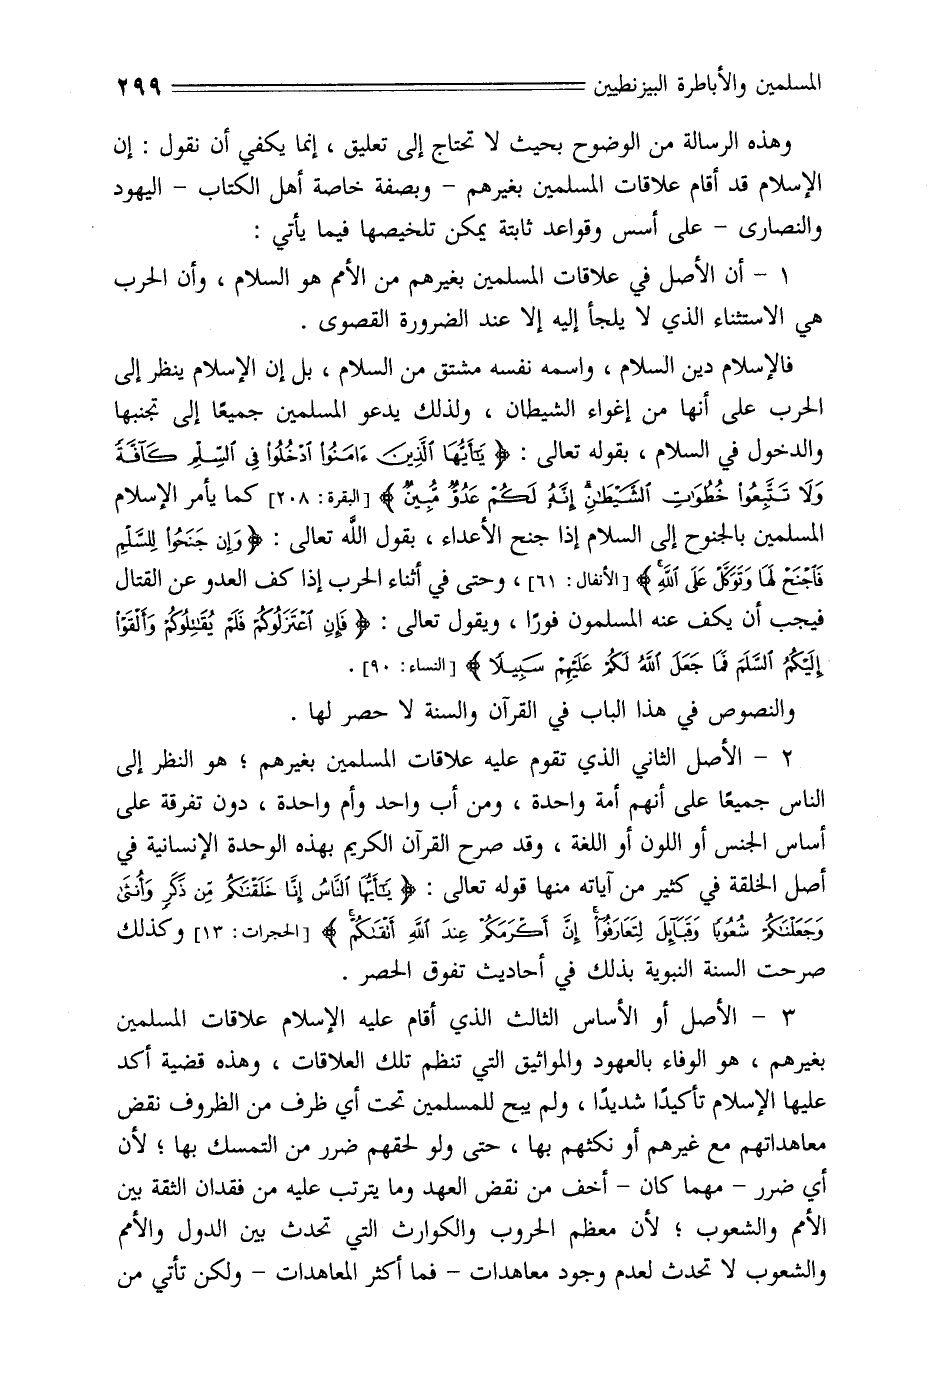 المسلمين والأباطرة البيزنطيين ٢٩٩
وهذه الرسالة من الوضوح بحيث لا تحتاج إلى تعليق ، إنما يكفي أن نقول : إن
الإسلام قد أقام علاقات المسلمين بغيرهم – وبصفة خاصة أهل الكتاب – اليهود
والنصارى – على أسس وقواعد ثابتة يمكن تلخيصها فيما يأتي :
١ – أن الأصل في علاقات المسلمين بغيرهم من الأمم هو السلام ، وأن الحرب
هي الاستثناء الذي لا يلجأ إليه إلا عند الضرورة القصوى .
فالإسلام دين السلام ، واسمه نفسه مشتق من السلام ، بل إن الإسلام ينظر إلى
الحرب على أنها من إغواء الشيطان ، ولذلك يدعو المسلمين جميعًا إلى تجنبها
والدخول في السلام ، بقوله تعالى : ﴿ يَٰٓأَيُّهَا ٱلَّذِينَ ءَامَنُوا۟ ٱدْخُلُوا۟ فِى ٱلسِّلْمِ كَآفَّةً
وَلَا تَتَّبِعُوا۟ خُطُوَٰتِ ٱلشَّيْطَٰنِ ۚ إِنَّهُۥ لَكُمْ عَدُوٌّ مُّبِينٌ ﴾ [البقرة: ٢٠٨] كما يأمر الإسلام
المسلمين بالجنوح إلى السلام إذا جنح الأعداء ، بقول اللَّه تعالى : ﴿ وَإِن جَنَحُوا۟ لِلسَّلْمِ
فَٱجْنَحْ لَهَا وَتَوَكَّلْ عَلَى ٱللَّهِ ۚ ﴾ [الأنفال: ٦١] ، وحتى في أثناء الحرب إذا كف العدو عن القتال
فيجب أن يكف عنه المسلمون فورًا ، ويقول تعالى : ﴿ فَإِنِ ٱعْتَزَلُوكُمْ فَلَمْ يُقَٰتِلُوكُمْ وَأَلْقَوْا۟
إِلَيْكُمُ ٱلسَّلَمَ فَمَا جَعَلَ ٱللَّهُ لَكُمْ عَلَيْهِمْ سَبِيلًا ﴾ [النساء: ٩٠] .
والنصوص في هذا الباب في القرآن والسنة لا حصر لها .
٢ – الأصل الثاني الذي تقوم عليه علاقات المسلمين بغيرهم ؛ هو النظر إلى
الناس جميعًا على أنهم أمة واحدة ، ومن أب واحد وأم واحدة ، دون تفرقة على
أساس الجنس أو اللون أو اللغة ، وقد صرح القرآن الكريم بهذه الوحدة الإنسانية في
أصل الخلقة في كثير من آياته منها قوله تعالى : ﴿ يَٰٓأَيُّهَا ٱلنَّاسُ إِنَّا خَلَقْنَٰكُم مِّن ذَكَرٍ وَأُنثَىٰ
وَجَعَلْنَٰكُمْ شُعُوبًا وَقَبَآئِلَ لِتَعَارَفُوٓا۟ ۚ إِنَّ أَكْرَمَكُمْ عِندَ ٱللَّهِ أَتْقَىٰكُمْ ۚ ﴾ [الحجرات: ١٣] وكذلك
صرحت السنة النبوية بذلك في أحاديث تفوق الحصر .
٣ – الأصل أو الأساس الثالث الذي أقام عليه الإسلام علاقات المسلمين
بغيرهم ، هو الوفاء بالعهود والمواثيق التي تنظم تلك العلاقات ، وهذه قضية أكد
عليها الإسلام تأكيدًا شديدًا ، ولم يبح للمسلمين تحت أي ظرف من الظروف نقض
معاهداتهم مع غيرهم أو نكثهم بها ، حتى ولو لحقهم ضرر من التمسك بها ؛ لأن
أي ضرر – مهما كان – أخف من نقض العهد وما يترتب عليه من فقدان الثقة بين
الأمم والشعوب ؛ لأن معظم الحروب والكوارث التي تحدث بين الدول والأمم
والشعوب لا تحدث لعدم وجود معاهدات – فما أكثر المعاهدات – ولكن تأتي من